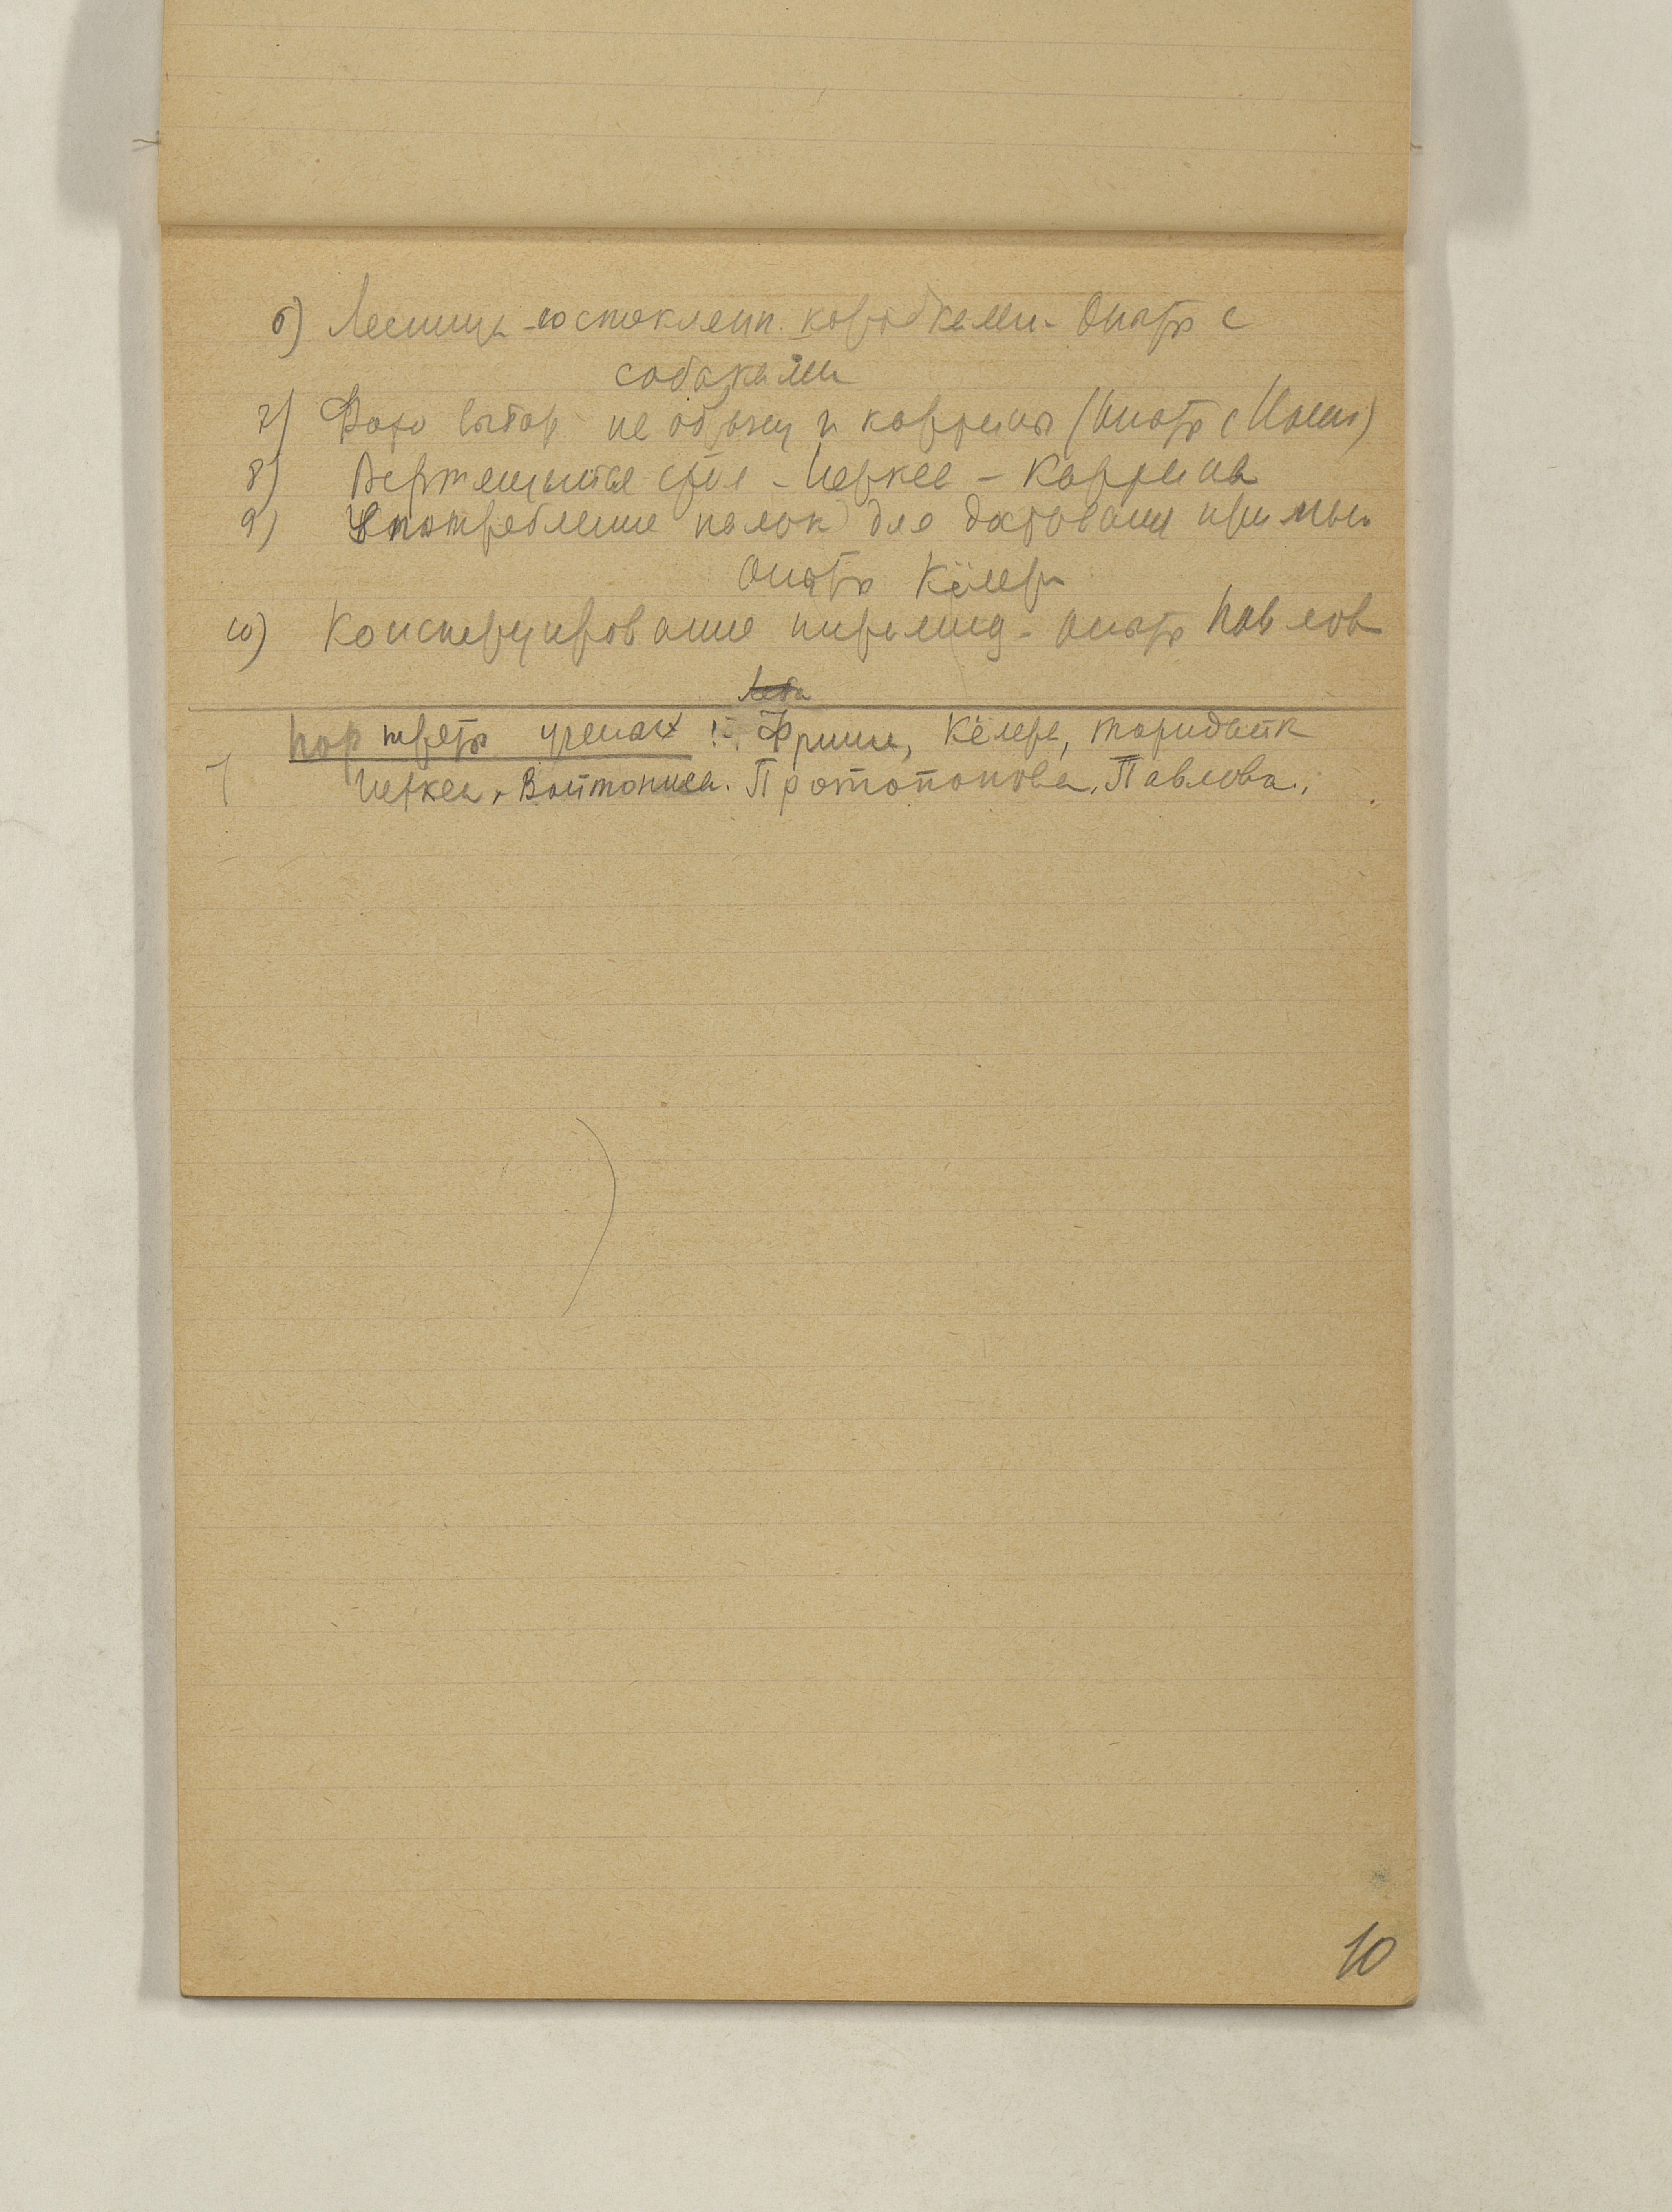 6) Лесница - со стеклян. коробками - Опыты с
собаками
7) Фото выбор на образец и картины (Опыты с Иони)
8) Вертящийся стол - Иеркес - Картина
9) Употребление палок для доставания приман.
Опыты Кёлера
10) Конструирование пирамид - опыты Павлова
Портреты ученых: Фриша, Кёлера, Торндайк
Иеркса, Войтониса. Протопопова, Павлова.
10